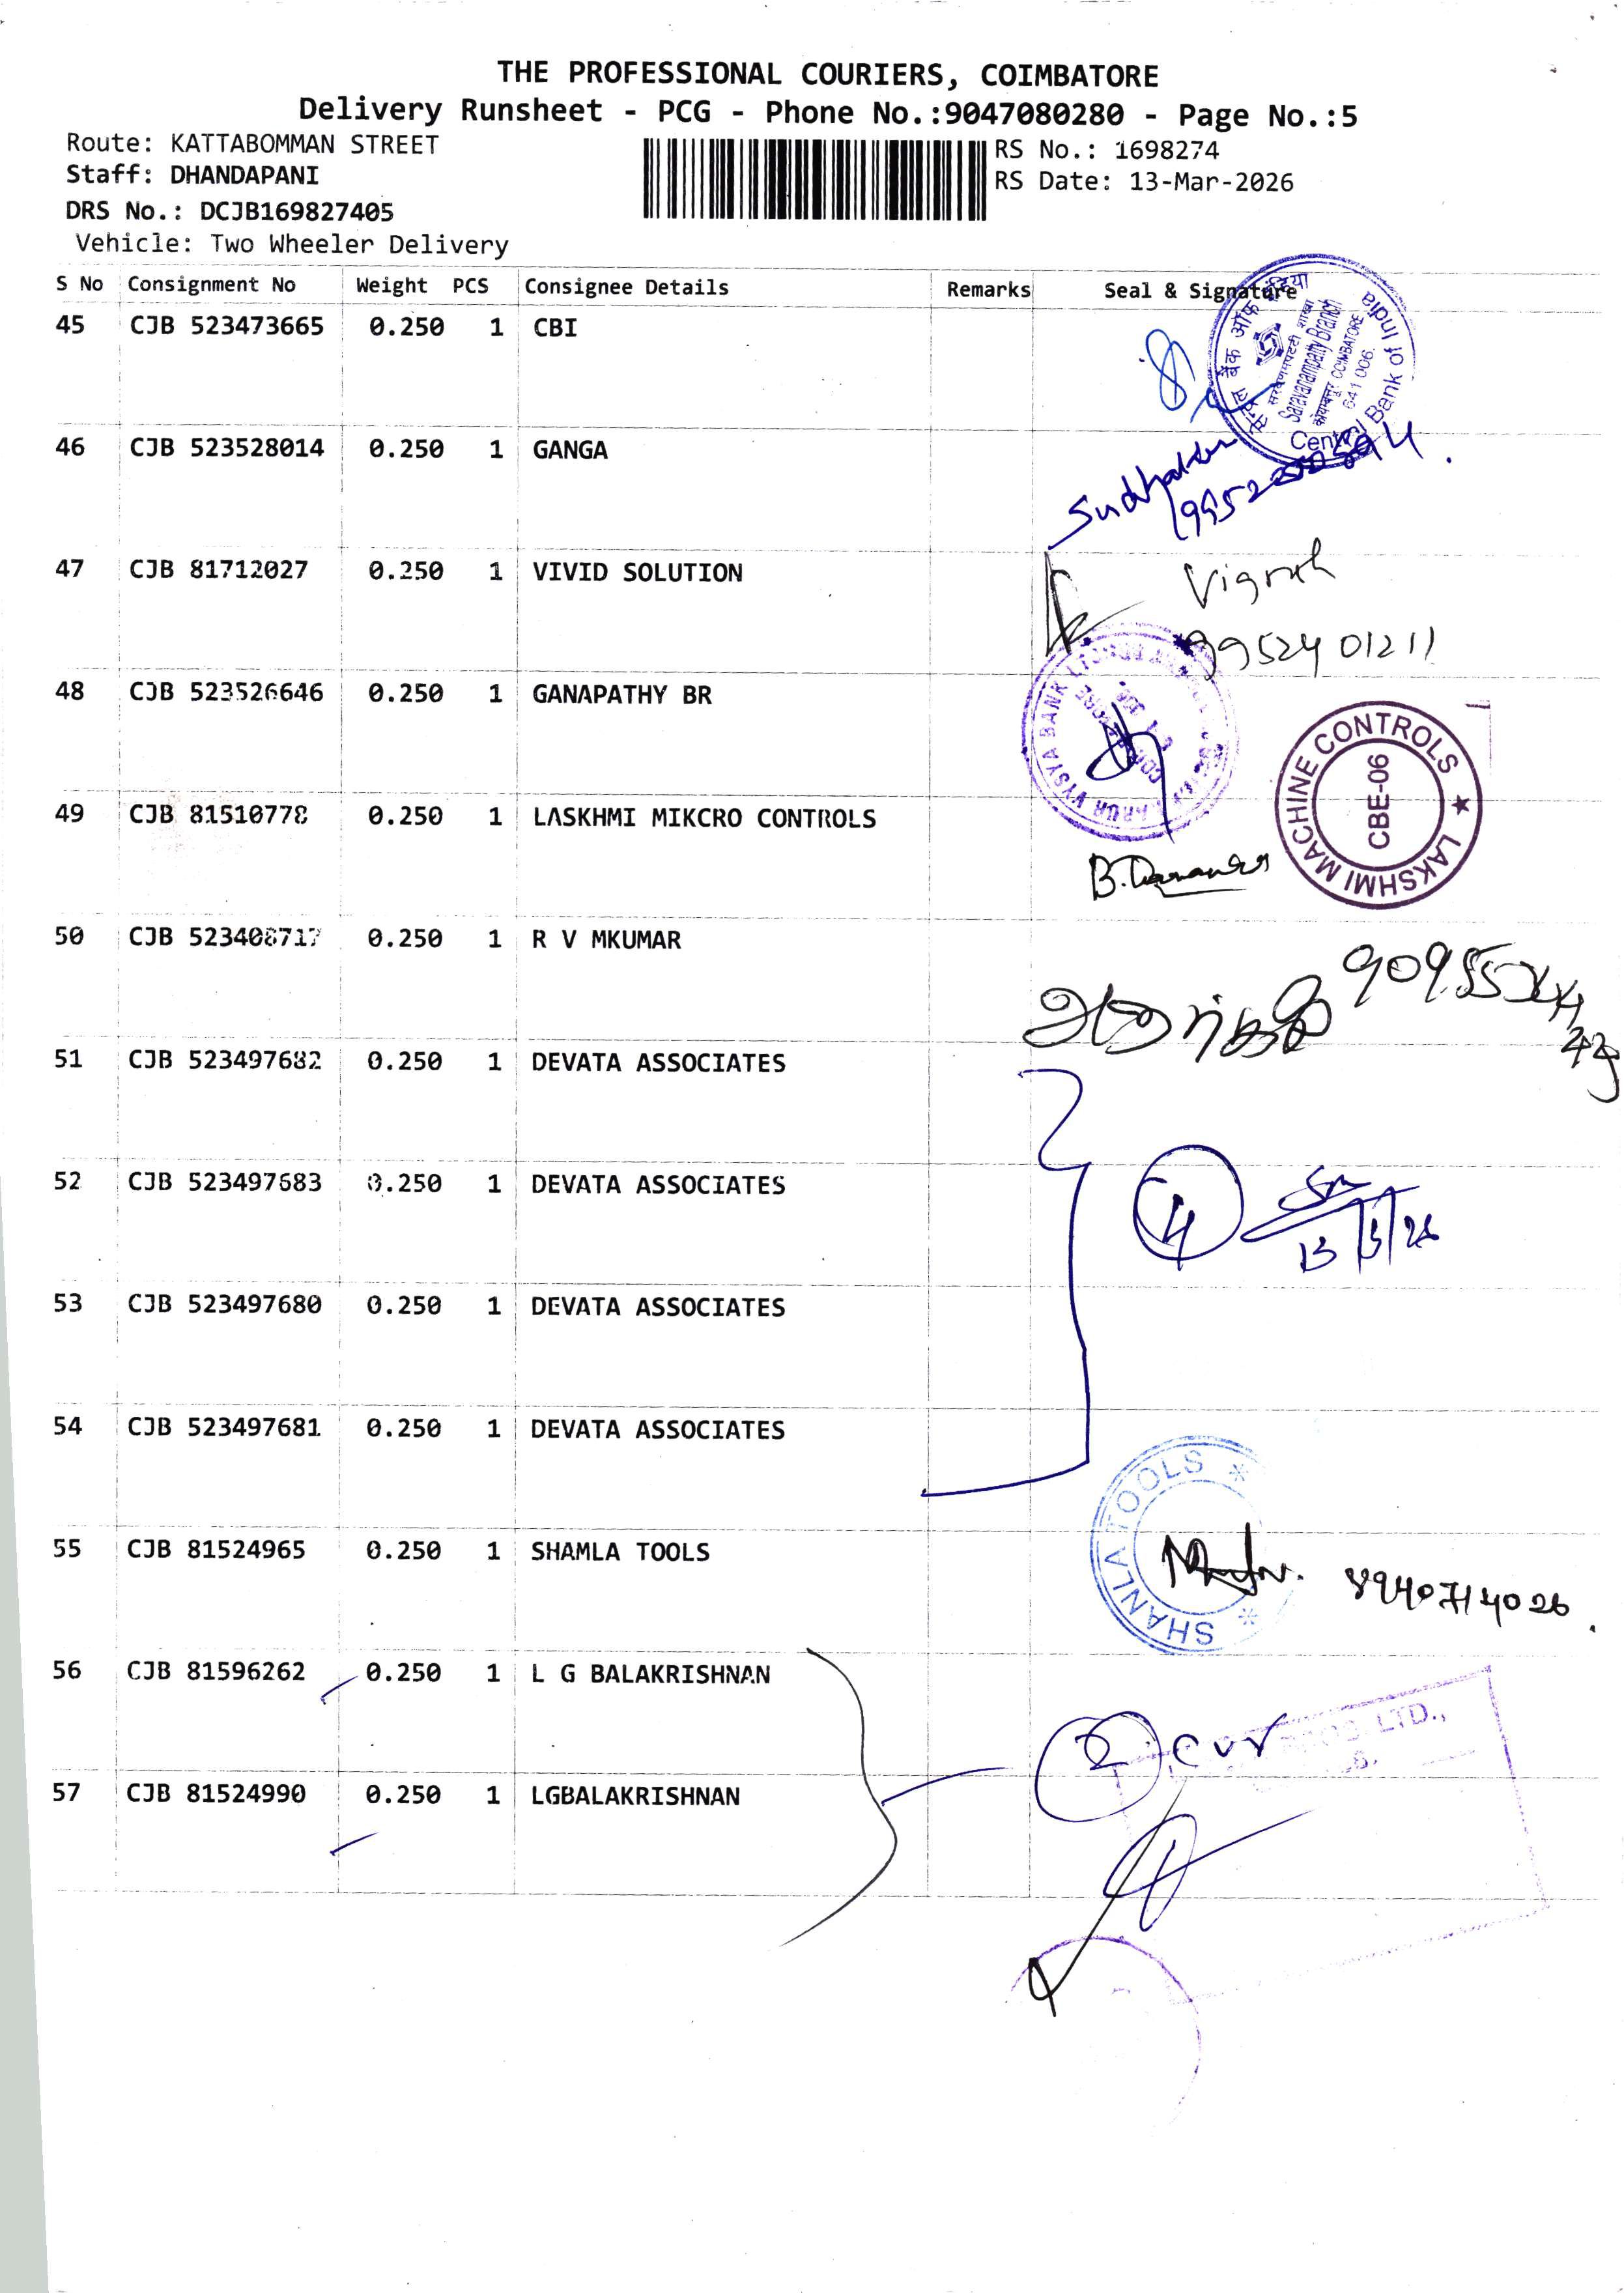 THE PROFESSIONAL COURIERS, COIMBATORE
Delivery Runsheet - PCG - Phone No.:9047080280 - Page No.:5
Route: KATTABOMMAN STREET
Staff: DHANDAPANI
DRS No.: DCJB169827405
Vehicle: Two Wheeler Delivery
RS No.: 1698274
RS Date: 13-Mar-2026
S No Consignment No Weight PCS Consignee Details Remarks Seal & Signature
45 CJB 523473665 0.250 1 CBI
Saravanampatty Branch
COIMBATORE
641 006.
Central Bank of India
46 CJB 523528014 0.250 1 GANGA
Sudhakar
47 CJB 81712027 0.250 1 VIVID SOLUTION
9952401211
48 CJB 523526646 0.250 1 GANAPATHY BR
VYSYA BANK LTD
49 CJB 81510778 0.250 1 LASKHMI MIKCRO CONTROLS
LAKSHMI MACHINE CONTROLS ★
CBE-06
50 CJB 523408717 0.250 1 R V MKUMAR
51 CJB 523497682 0.250 1 DEVATA ASSOCIATES
52 CJB 523497683 0.250 1 DEVATA ASSOCIATES
4
13/3/26
53 CJB 523497680 0.250 1 DEVATA ASSOCIATES
54 CJB 523497681 0.250 1 DEVATA ASSOCIATES
55 CJB 81524965 0.250 1 SHAMLA TOOLS
* SHANLA TOOLS *
8940714026
56 CJB 81596262 0.250 1 L G BALAKRISHNAN
2 cvr
LTD.,
57 CJB 81524990 0.250 1 LGBALAKRISHNAN